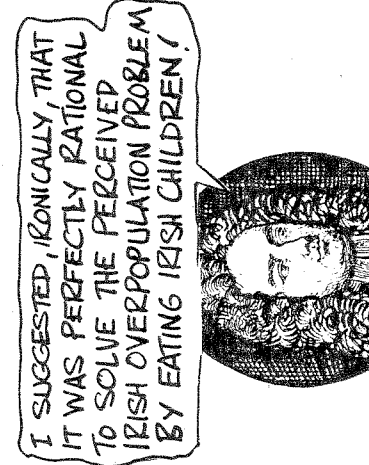 I SUGGESTED, IRONICALLY, THAT
IT WAS PERFECTLY RATIONAL
TO SOLVE THE PERCEIVED
IRISH OVERPOPULATION PROBLEM
BY EATING IRISH CHILDREN!